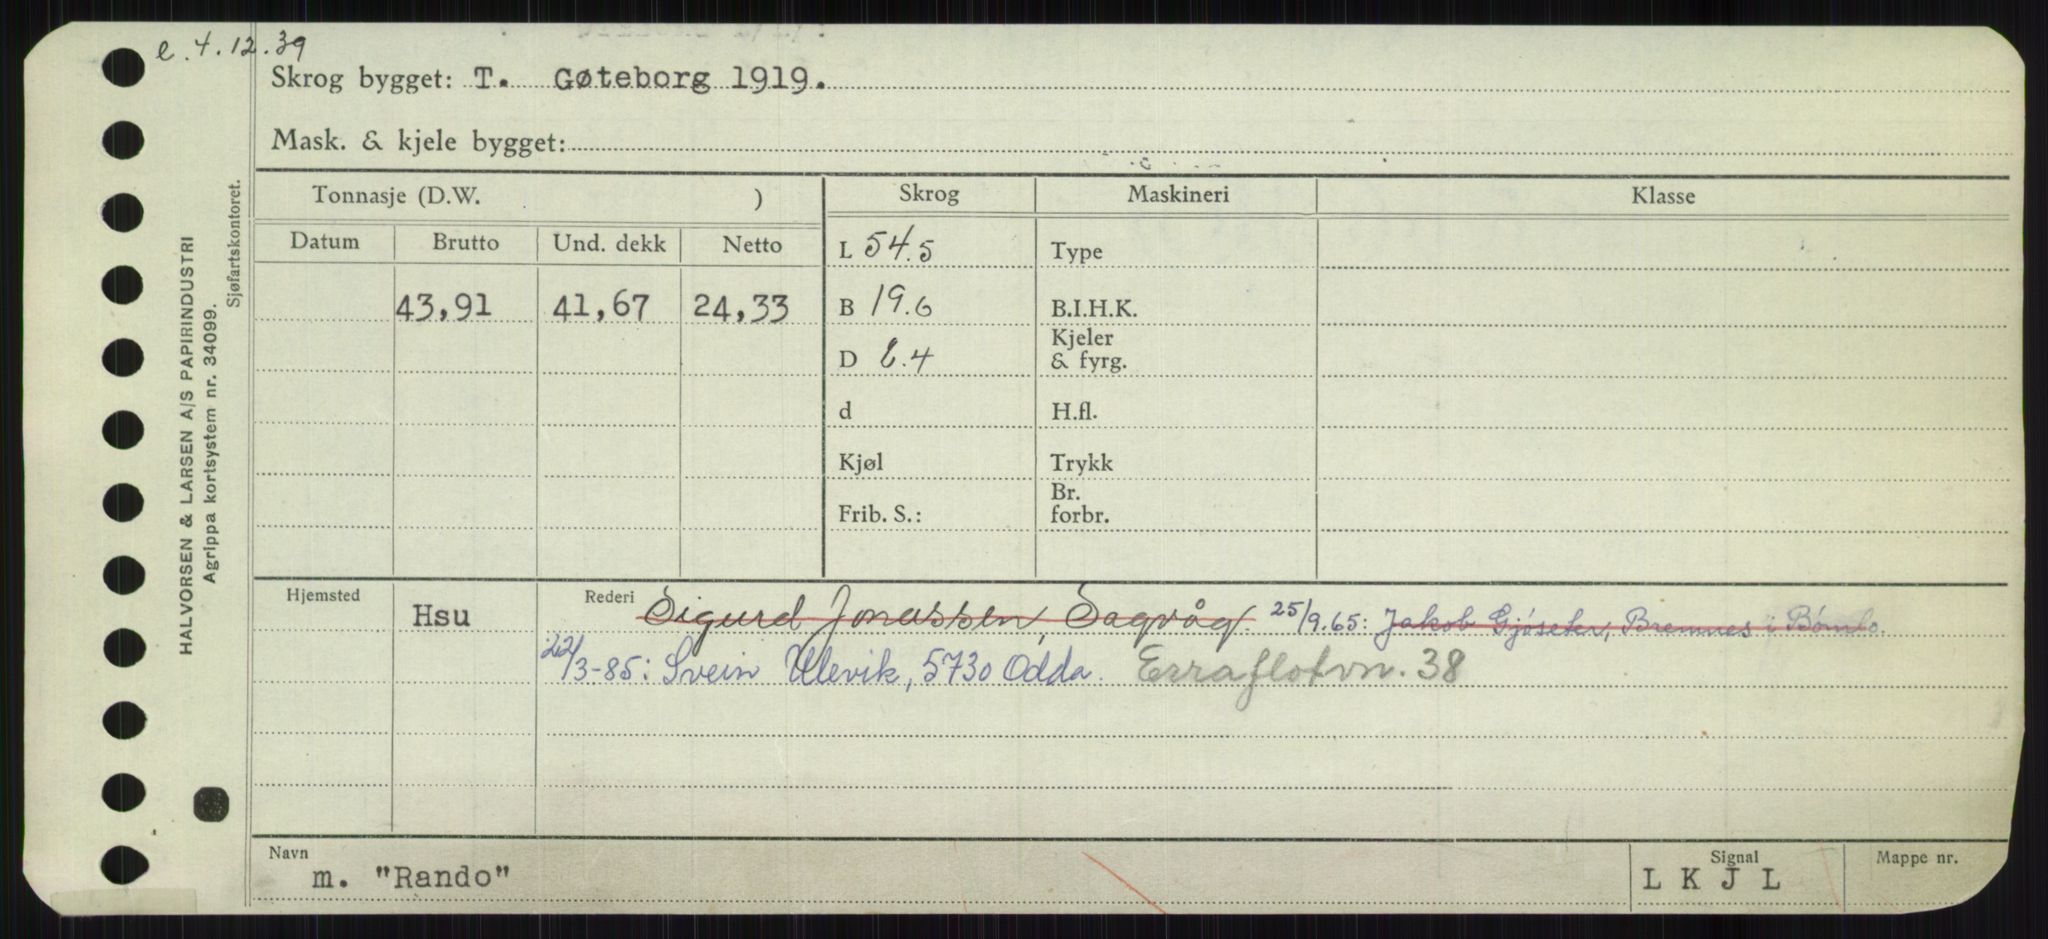 e. 4.12.39
Skrog bygget: T. Gøteborg 1919.
Mask. & kjele bygget:
Tonnasje (D.W. ) Skrog Maskineri Klasse
Datum Brutto Und. dekk Netto L 54.5 Type
43,91 41,67 24,33 B 19.6 B.I.H.K.
D 8.4 Kjeler & fyrg.
d H.fl.
Kjøl Trykk
Frib. S.: Br. forbr.
Hjemsted Hsu Rederi Sigurd Jonassen, Sagvåg. 25/9.65: Jakob Gjøseter, Bremnes i Bømlo.
22/3-85: Svein Ulevik, 5730 Odda. Erraflotvn. 38
Navn m. "Rando" Signal L K J L Mappe nr.
HALVORSEN & LARSEN A/S PAPIRINDUSTRI
Agrippa kortsystem nr. 34099.
Sjøfartskontoret.